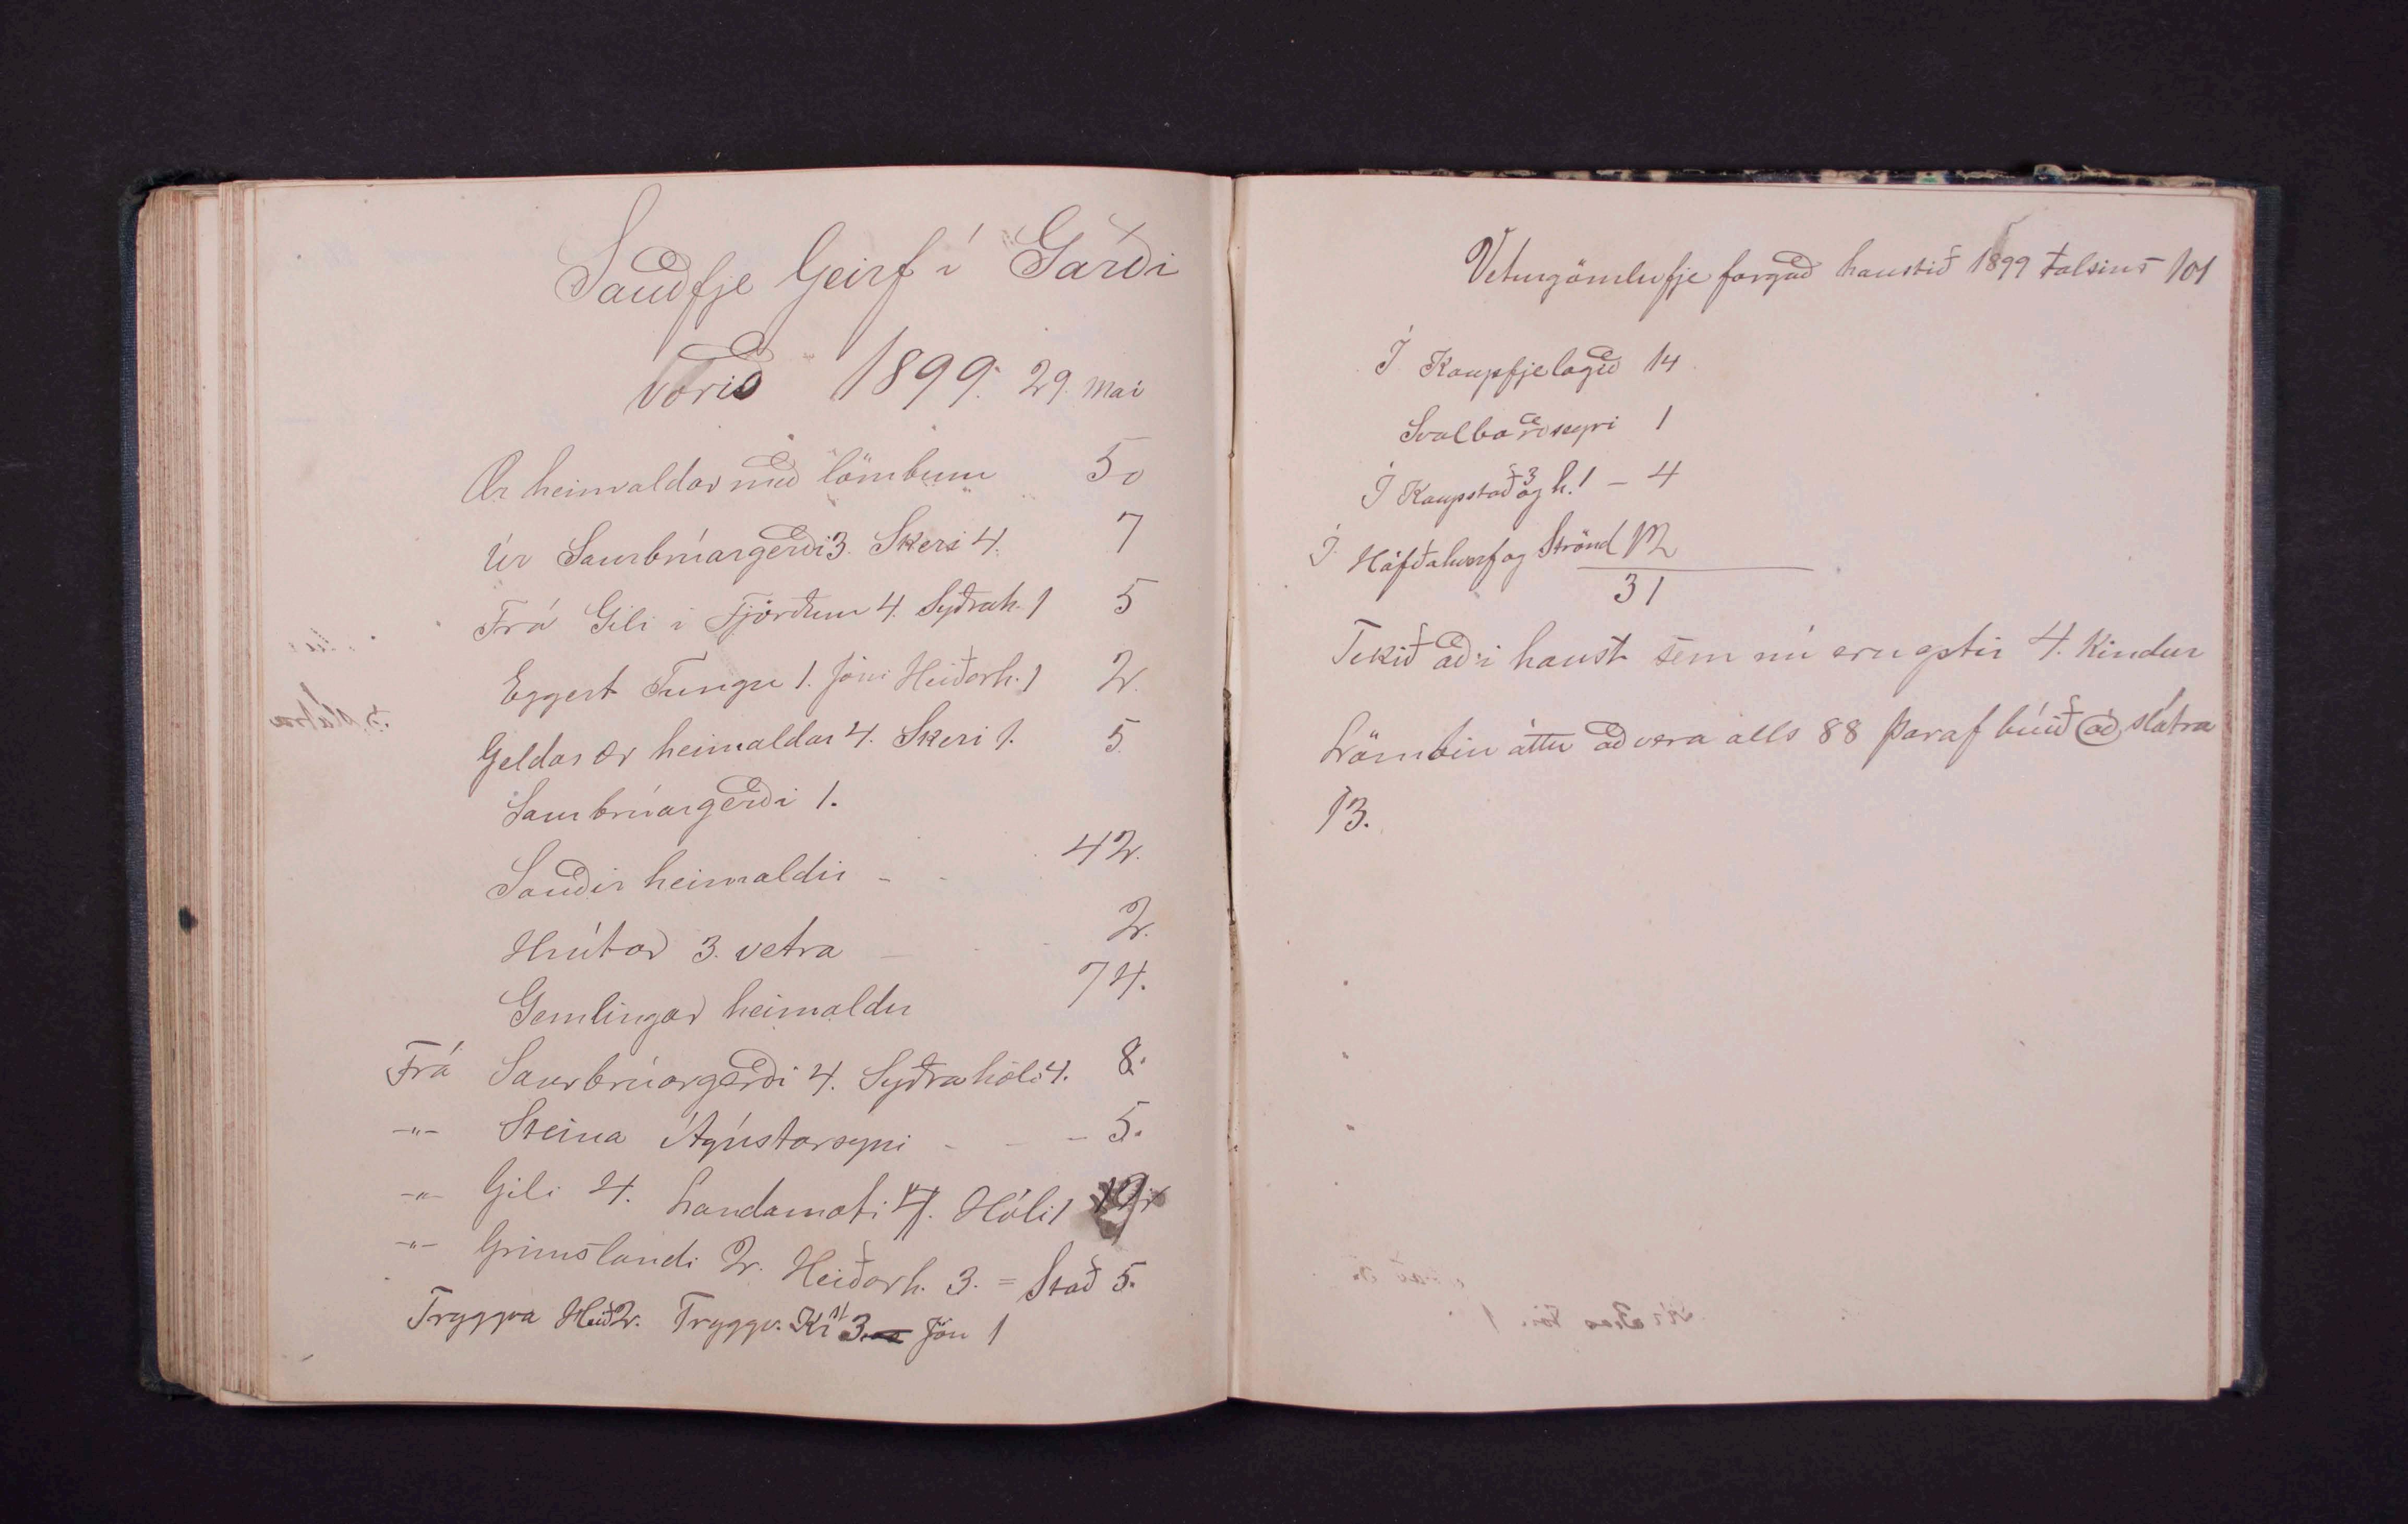 Sauðfje Geirf í Garði
Vorið 1899. 29. Mai
Ær heimaldar með lömbum 50
Úr Saurbrúargerði 3. Skeri 4. 7
Frá Gili i Fjörðum 4. Syðrah. 1 5
Eggert Tungu 1. Jóni Heiðarh. 1 2.
Geldar ær heimaldar 4. Skeri 1. 5.
Saurbrúargerði 1.
Sauðir heimaldir - - 42.
Hrútar 3. vetra - 2.
Gemlingar heimaldir 74.
Frá Saurbrúargerði 4. Syðrahóli 4. 8.
-"- Steina Ágústarsyni - - - 5.
-"- Gili 4. Landamóti 4. Hóli 1
-"- Grimslandi 2. Heiðarh. 3. = Stað 5.
Tryggva Heið 2. Tryggv. Ki 3. Jón 1
Veturgömlu fje fargað haustið 1899 talsins 101
Í Kaupfjelagið 14
Svalbarðseyri 1
Í Kaupstað 3 og h. 1 - 4
Í Höfðahverf og Strönd 12
31
Tekið að í haust sem nú eru eptir 4. Kindur
Lömbin áttu að vera alls 88 þaraf búið að slátra
13.